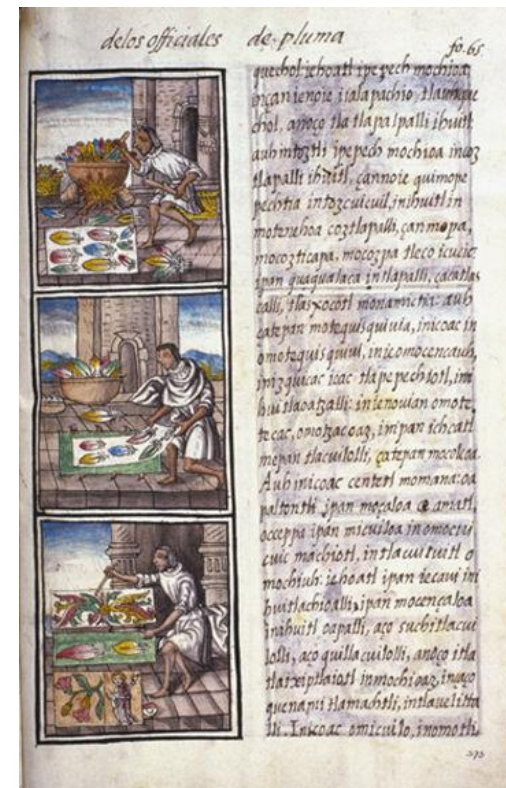 de los officiales de pluma
fo. 65.
quechol iehoatl ipepech mochioa
inçan ienoie iialapachio, tlauhque
chol, anoço tla tlapalpalli ihuitl
auh in toztli ipepech mochioa in coz
tlapalli ihuitl, çannoie quimope
pechtia in tozcuicuil, in ihuitl in
motenehoa coztlapalli, çan mopa,
mocozticapa, mocozpa tleco icucic
ipan quaqualaca in tlapalli, çacatlas
calli, tlasxocotl monamictia: auh
çatepan motequisquiuia, inicoac in
omotequisquiui, inic omocencauh,
in izquicac icac tlapepechiotl, im
huitlaoatzalli: in ienouian omote
tecac, omotzacoaz, inipan ichcatl
mepan tlacuilolli, çatepan mocoleoa.
Auh inicoac centetl momana: oa
paltontli ipan moçaloa amatl,
occeppa ipan micuiloa in omocui
cuic machiotl, in tlacuicuitl o
mochiuh: iehoatl ipan iecaui in
huitlachioalli, ipan mocençaloa
in ihuitl oapalli, aço suchitlacui
lolli, aço quillacuilolli, anoço itla
tlaixiptlaiotl in mochioaz, in çaço
quenami tlamachtli, in tlauelitta
lli. Inicoac omicuilo, in omotli
273